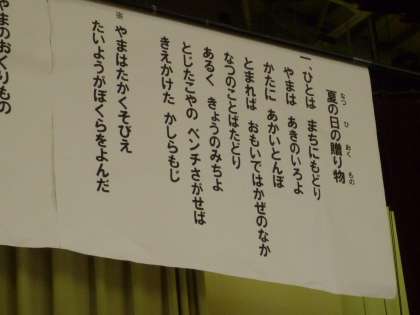 夏の日の贈り物
なつ ひ おく もの
一、ひとは まちにもどり
やまは あきのいろよ
かたに あかいとんぼ
とまれば おもいではかぜのなか
なつのことばたどり
あるく きょうのみちよ
とじたこやの ベンチさがせば
きえかけた かしらもじ
※ やまはたかくそびえ
たいようがぼくらをよんだ
やまのおくりもの